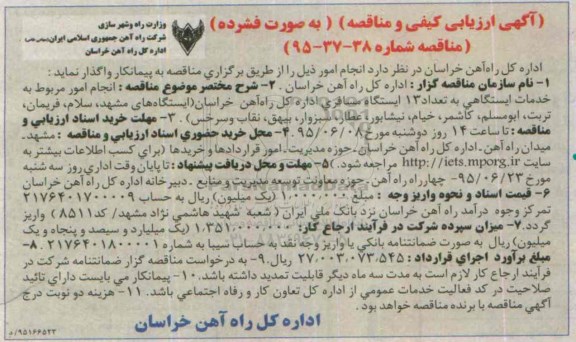 (آگهی ارزیابی کیفی و مناقصه) ( به صورت فشرده )
(مناقصه شماره ۳۸-۳۷-۹۵)
وزارت راه وشهرسازی
شرکت راه آهن جمهوری اسلامی ایران
اداره کل راه آهن خراسان
اداره کل راه‌آهن خراسان در نظر دارد انجام امور ذیل را از طریق برگزاری مناقصه به پیمانکار واگذار نماید :
۱- نام سازمان مناقصه گزار : اداره کل راه‌آهن خراسان . ۲- شرح مختصر موضوع مناقصه : انجام امور مربوط به
خدمات ایستگاهی به تعداد۱۳ ایستگاه مسافری اداره کل راه‌آهن خراسان (ایستگاه‌های مشهد، سلام، فریمان،
تربت، ابومسلم، کاشمر، خیام، نیشابور، عطار، سبزوار، بیهق، نقاب وسرخس) . ۳- مهلت خرید اسناد ارزیابی و
مناقصه : تا ساعت ۱۴ روز دوشنبه مورخ ۹۵/۰۶/۰۸ ۴- محل خرید حضوری اسناد ارزیابی و مناقصه : مشهد-
میدان راه آهن-اداره کل راه‌آهن خراسان-حوزه مدیریت-امور قراردادها و خریدها (برای کسب اطلاعات بیشتر به
سایت http://iets.mporg.ir مراجعه شود.) ۵- مهلت و محل دریافت پیشنهاد : تا پایان وقت اداری روز سه شنبه
مورخ ۹۵/۰۶/۲۳- چهارراه راه آهن-حوزه معاونت توسعه مدیریت و منابع -دبیرخانه اداره کل راه آهن خراسان
۶- قیمت اسناد و نحوه واریز وجه : مبلغ ۱.۰۰۰.۰۰۰ (یک میلیون) ریال به حساب ۲۱۷۶۴۰۱۷۰۰۰۰۹
تمرکز وجوه درآمد راه آهن خراسان نزد بانک ملی ایران ( شعبه شهید هاشمی نژاد مشهد/ کد۸۵۱۱ ) واریز
گردد.۷- میزان سپرده شرکت در فرآیند ارجاع کار: ۱.۳۵۱.۰۰۰.۰۰۰ (یک میلیارد و سیصد و پنجاه و یک
میلیون) ریال به صورت ضمانتنامه بانکی یا واریز وجه نقد به حساب سیبا به شماره ۲۱۷۶۴۰۱۸۰۰۰۰۱ .۸-
مبلغ برآورد اجرای قرارداد : ۲۷.۰۰۳.۰۷۳.۵۴۵ ریال.۹- به درخواست مناقصه گزار ضمانتنامه شرکت در
فرآیند ارجاع کار لازم است به مدت سه ماه دیگر قابلیت تمدید داشته باشد. ۱۰- پیمانکار می بایست دارای تائید
صلاحیت در کد فعالیت خدمات عمومی از اداره کل تعاون کار و رفاه اجتماعی باشد. ۱۱- هزینه دو نوبت درج
آگهی مناقصه با برنده مناقصه خواهد بود .
اداره کل راه آهن خراسان
۹۵۱۶۶۵۲۲/م